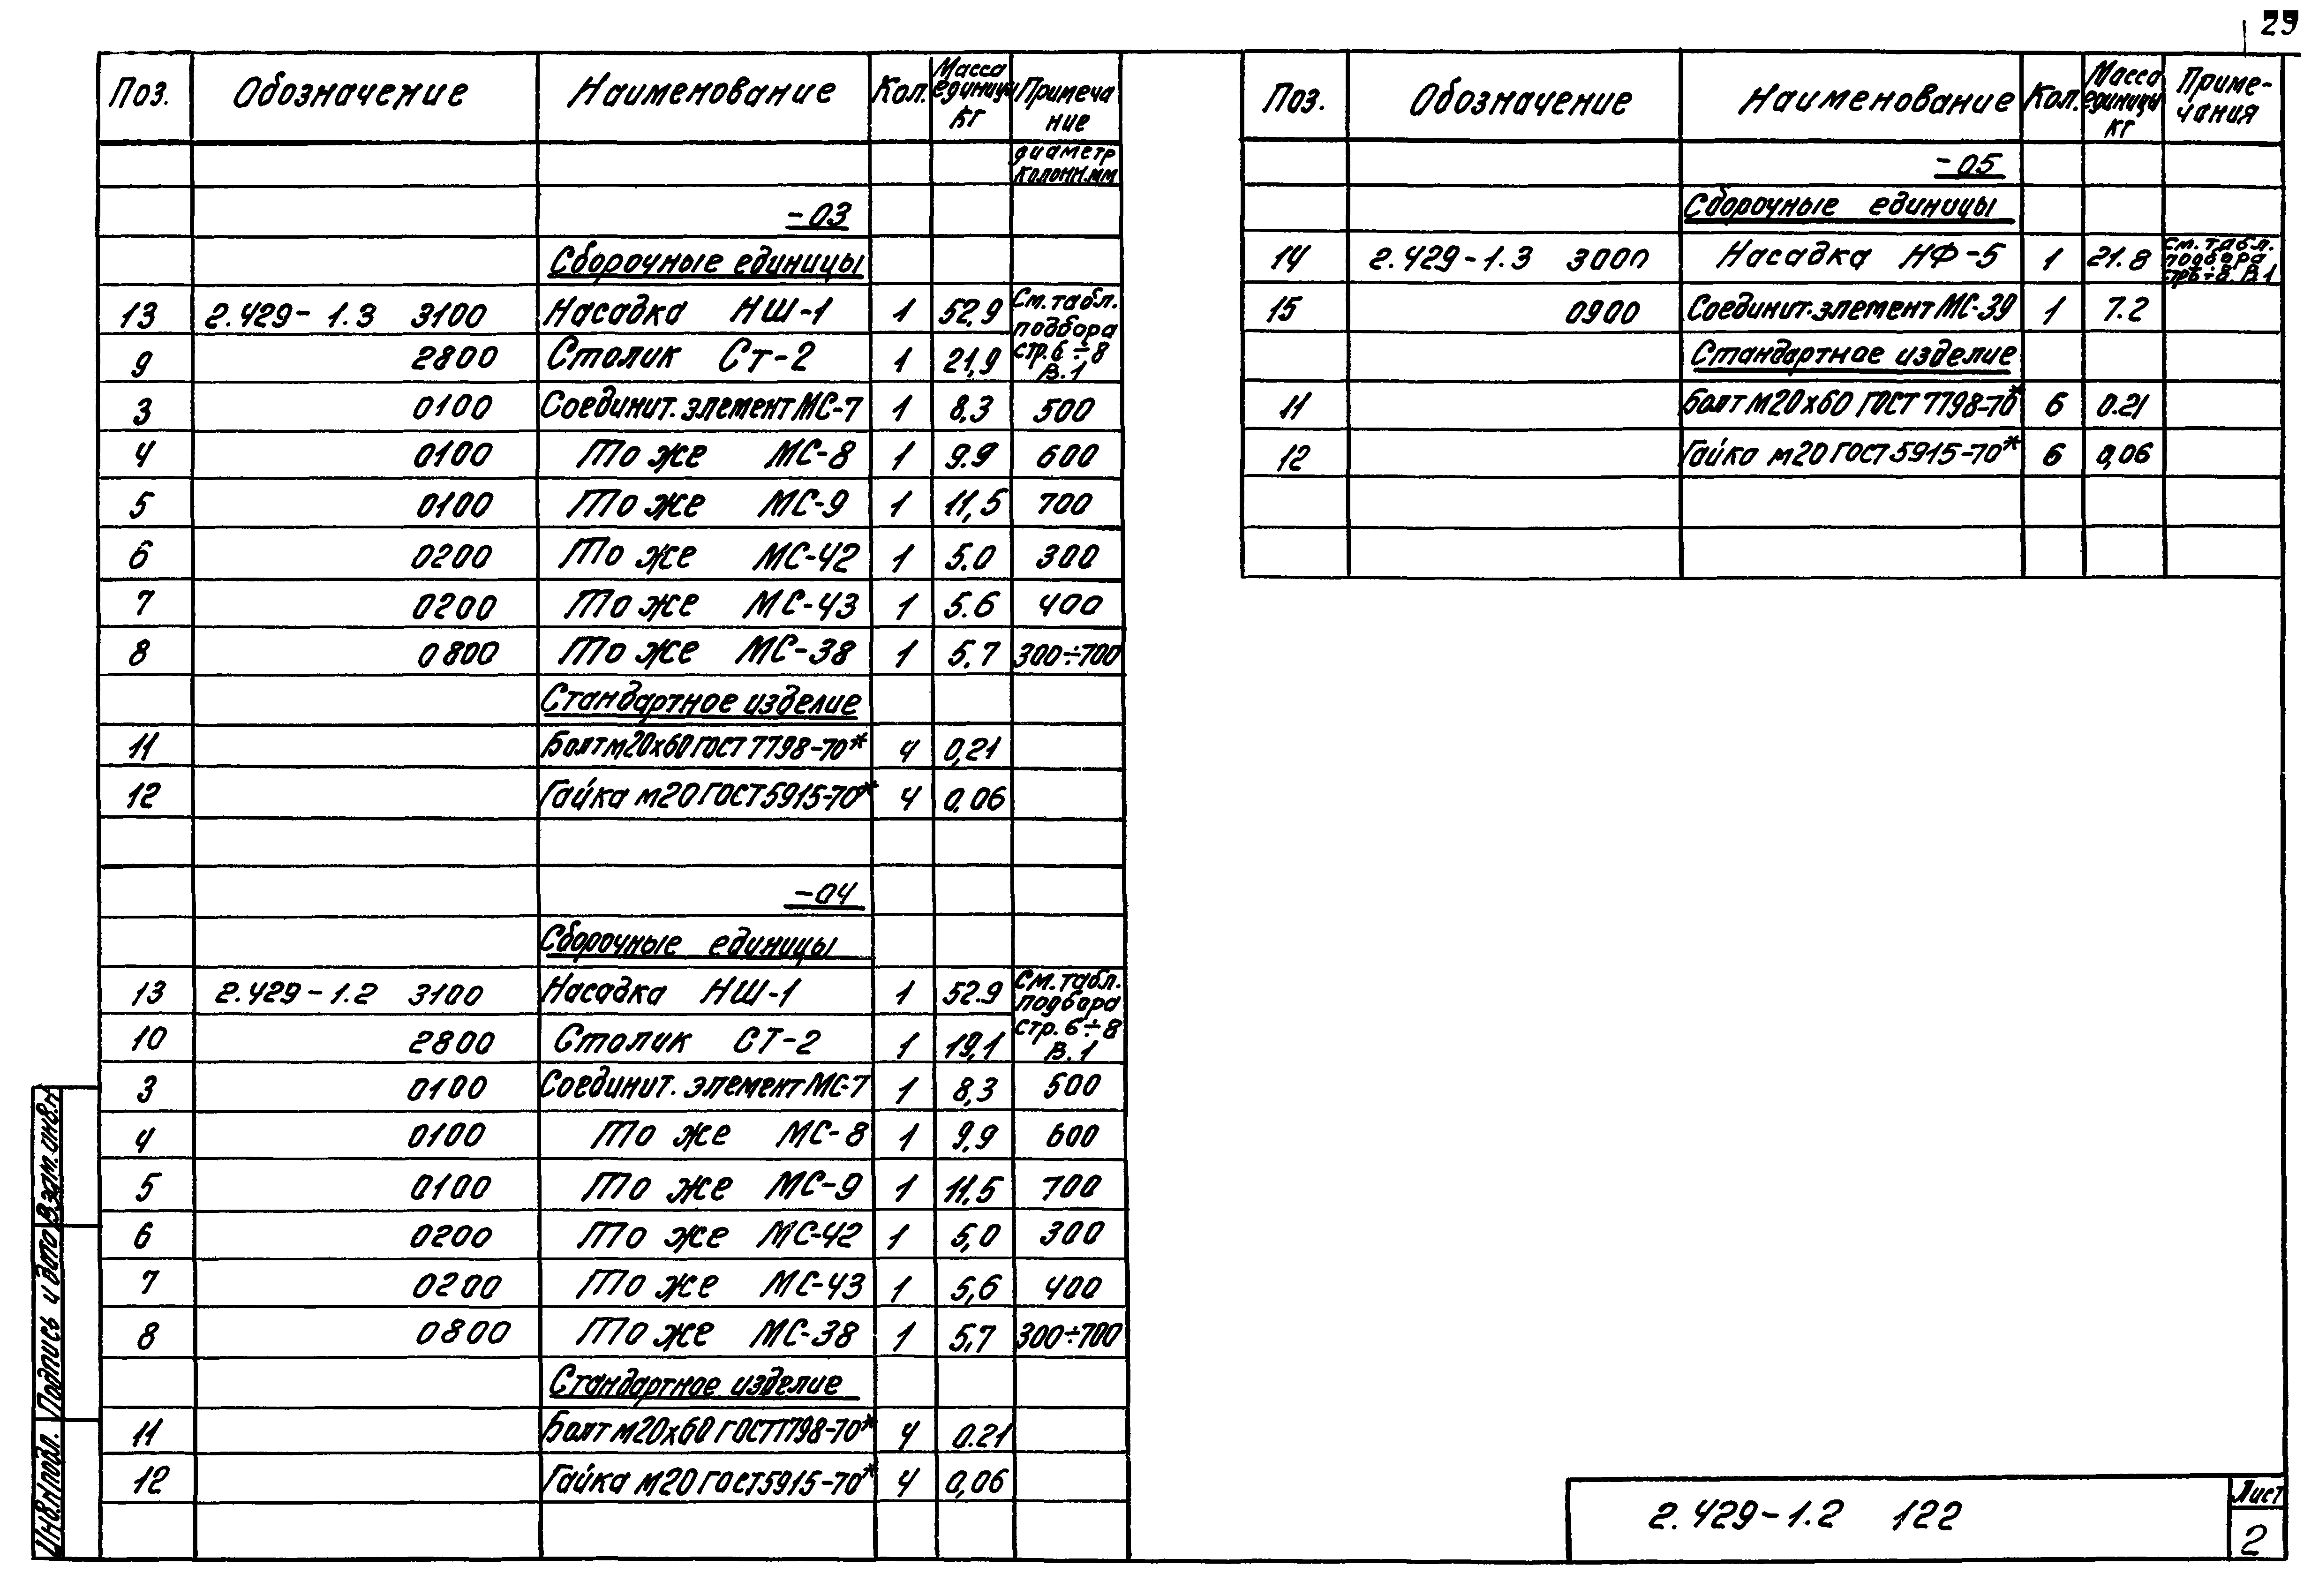 29
Поз. Обозначение Наименование Кол. Масса единицы кг Примечание
диаметр колонн.мм
-03
Сборочные единицы
13 2.429-1.3 3100 Насадка НШ-1 1 52,9 См. табл. подбора
9 2800 Столик Ст-2 1 21,9 стр. 6÷8 В.1
3 0100 Соединит. элемент МС-7 1 8,3 500
4 0100 То же МС-8 1 9.9 600
5 0100 То же МС-9 1 11,5 700
6 0200 То же МС-42 1 5.0 300
7 0200 То же МС-43 1 5.6 400
8 0800 То же МС-38 1 5,7 300÷700
Стандартное изделие
11 Болт м20х60 ГОСТ 7798-70* 4 0,21
12 Гайка м20 ГОСТ 5915-70* 4 0,06
-04
Сборочные единицы
13 2.429-1.2 3100 Насадка НШ-1 1 52.9 См. табл. подбора
10 2800 Столик СТ-2 1 19,1 стр. 6÷8 В.1
3 0100 Соединит. элемент МС-7 1 8,3 500
4 0100 То же МС-8 1 9,9 600
5 0100 То же МС-9 1 11,5 700
6 0200 То же МС-42 1 5,0 300
7 0200 То же МС-43 1 5,6 400
8 0800 То же МС-38 1 5,7 300÷700
Стандартное изделие
11 Болт м20х60 ГОСТ 7798-70* 4 0.21
12 Гайка м20 ГОСТ 5915-70* 4 0,06
Поз. Обозначение Наименование Кол. Масса единицы кг Приме-чания
-05
Сборочные единицы
14 2.429-1.3 3000 Насадка НФ-5 1 21.8 см. табл. подбора стр6÷8. В.1
15 0900 Соединит. элемент МС-39 1 7.2
Стандартное изделие
11 Болт м20х60 ГОСТ 7798-70* 6 0.21
12 Гайка м20 ГОСТ 5915-70* 6 0,06
Инв.N подл. Подпись и дата Взам.инв.N
2.429-1.2 122
Лист
2